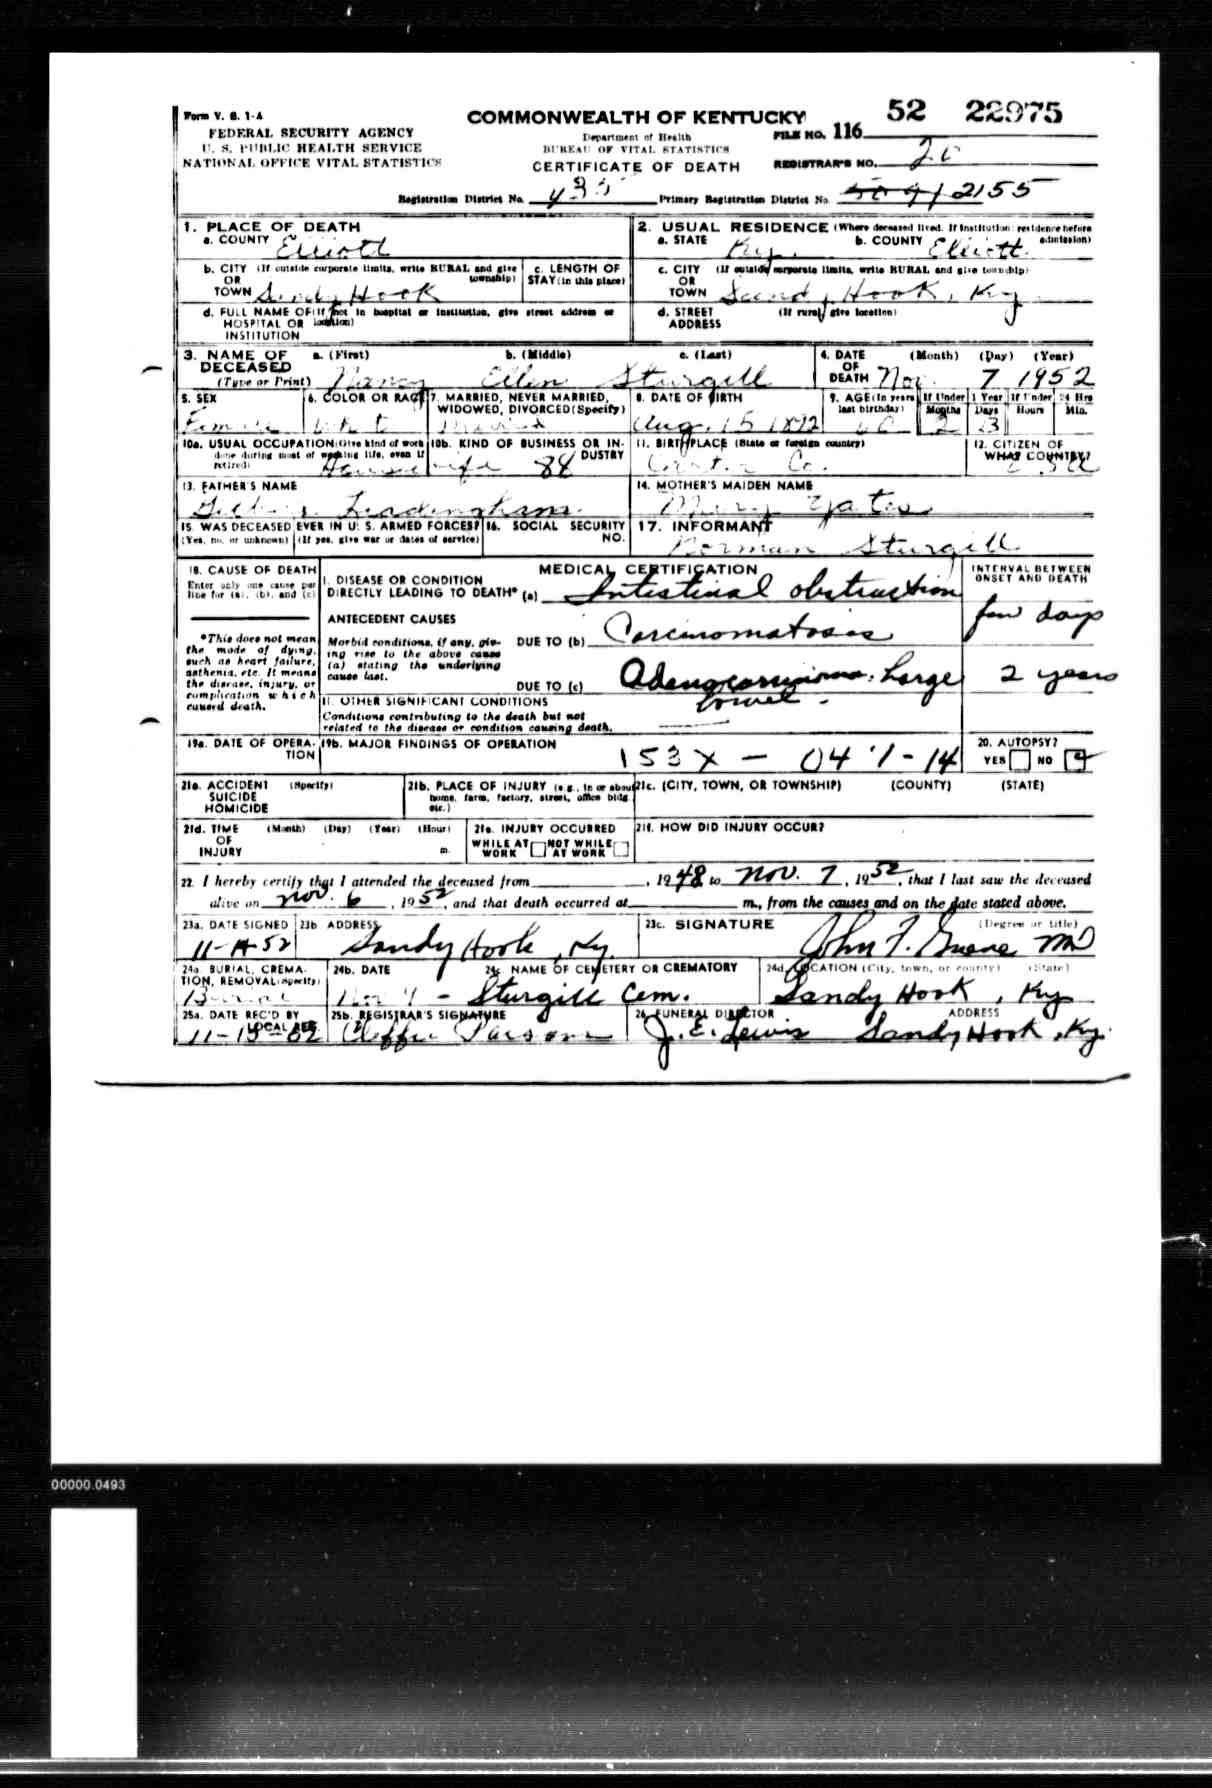 Form V. S. 1-A
FEDERAL SECURITY AGENCY
U. S. PUBLIC HEALTH SERVICE
NATIONAL OFFICE VITAL STATISTICS
COMMONWEALTH OF KENTUCKY
Department of Health
BUREAU OF VITAL STATISTICS
CERTIFICATE OF DEATH
52 22975
FILE NO. 116
REGISTRAR'S NO.
Registration District No. 435
Primary Registration District No. 2155
1. PLACE OF DEATH
a. COUNTY Elliott
2. USUAL RESIDENCE (Where deceased lived. If institution: residence before admission)
a. STATE Ky. b. COUNTY Elliott
b. CITY (If outside corporate limits, write RURAL and give township)
OR
TOWN Sandy Hook
c. LENGTH OF STAY (in this place)
c. CITY (If outside corporate limits, write RURAL and give township)
OR
TOWN Sandy Hook, Ky
d. FULL NAME OF (If not in hospital or institution, give street address or location)
HOSPITAL OR
INSTITUTION
d. STREET ADDRESS (If rural, give location)
3. NAME OF DECEASED (Type or Print)
a. (First) b. (Middle) c. (Last)
Nancy Ellen Sturgill
4. DATE OF DEATH (Month) (Day) (Year)
Nov. 7 1952
5. SEX
Female
6. COLOR OR RACE
White
7. MARRIED, NEVER MARRIED, WIDOWED, DIVORCED (Specify)
Married
8. DATE OF BIRTH
Aug. 15 1892
9. AGE (In years last birthday)
60
If Under 1 Year
Months 2 Days 23
If Under 24 Hrs
Hours Min.
10a. USUAL OCCUPATION (Give kind of work done during most of working life, even if retired)
Housewife
10b. KIND OF BUSINESS OR INDUSTRY
88
11. BIRTHPLACE (State or foreign country)
Carter Co.
12. CITIZEN OF WHAT COUNTRY?
U.S.A
13. FATHER'S NAME
Leadingham
14. MOTHER'S MAIDEN NAME
Mary Yates
15. WAS DECEASED EVER IN U. S. ARMED FORCES?
(Yes, no, or unknown) (If yes, give war or dates of service)
16. SOCIAL SECURITY NO.
17. INFORMANT
Norman Sturgill
18. CAUSE OF DEATH
Enter only one cause per line for (a), (b), and (c)
MEDICAL CERTIFICATION
INTERVAL BETWEEN ONSET AND DEATH
I. DISEASE OR CONDITION
DIRECTLY LEADING TO DEATH* (a) Intestinal obstruction few days
*This does not mean the mode of dying, such as heart failure, asthenia, etc. It means the disease, injury, or complication which caused death.
ANTECEDENT CAUSES
Morbid conditions, if any, giving rise to the above cause (a) stating the underlying cause last.
DUE TO (b) Carcinomatosis
DUE TO (c) Adenocarcinoma, Large bowel - 2 years
II. OTHER SIGNIFICANT CONDITIONS
Conditions contributing to the death but not related to the disease or condition causing death.
19a. DATE OF OPERATION
19b. MAJOR FINDINGS OF OPERATION
153X - 04
20. AUTOPSY?
YES NO
21a. ACCIDENT (Specify)
SUICIDE
HOMICIDE
21b. PLACE OF INJURY (e.g., in or about home, farm, factory, street, office bldg. etc.)
21c. (CITY, TOWN, OR TOWNSHIP) (COUNTY) (STATE)
21d. TIME OF INJURY (Month) (Day) (Year) (Hour) m.
21e. INJURY OCCURRED
WHILE AT WORK NOT WHILE AT WORK
21f. HOW DID INJURY OCCUR?
22. I hereby certify that I attended the deceased from , 1948 to Nov. 7, 1952, that I last saw the deceased
alive on Nov. 6, 1952, and that death occurred at m., from the causes and on the date stated above.
23a. DATE SIGNED
23b. ADDRESS
Sandy Hook, Ky.
23c. SIGNATURE (Degree or title)
John F. Greene MD
24a. BURIAL, CREMATION, REMOVAL (Specify)
Burial
24b. DATE
Nov
24c. NAME OF CEMETERY OR CREMATORY
Sturgill Cem.
24d. LOCATION (City, town, or county) (State)
Sandy Hook, Ky
25a. DATE REC'D BY LOCAL REG.
25b. REGISTRAR'S SIGNATURE
Parsons
26. FUNERAL DIRECTOR ADDRESS
J. E. Lewis Sandy Hook, Ky.
00000.0493